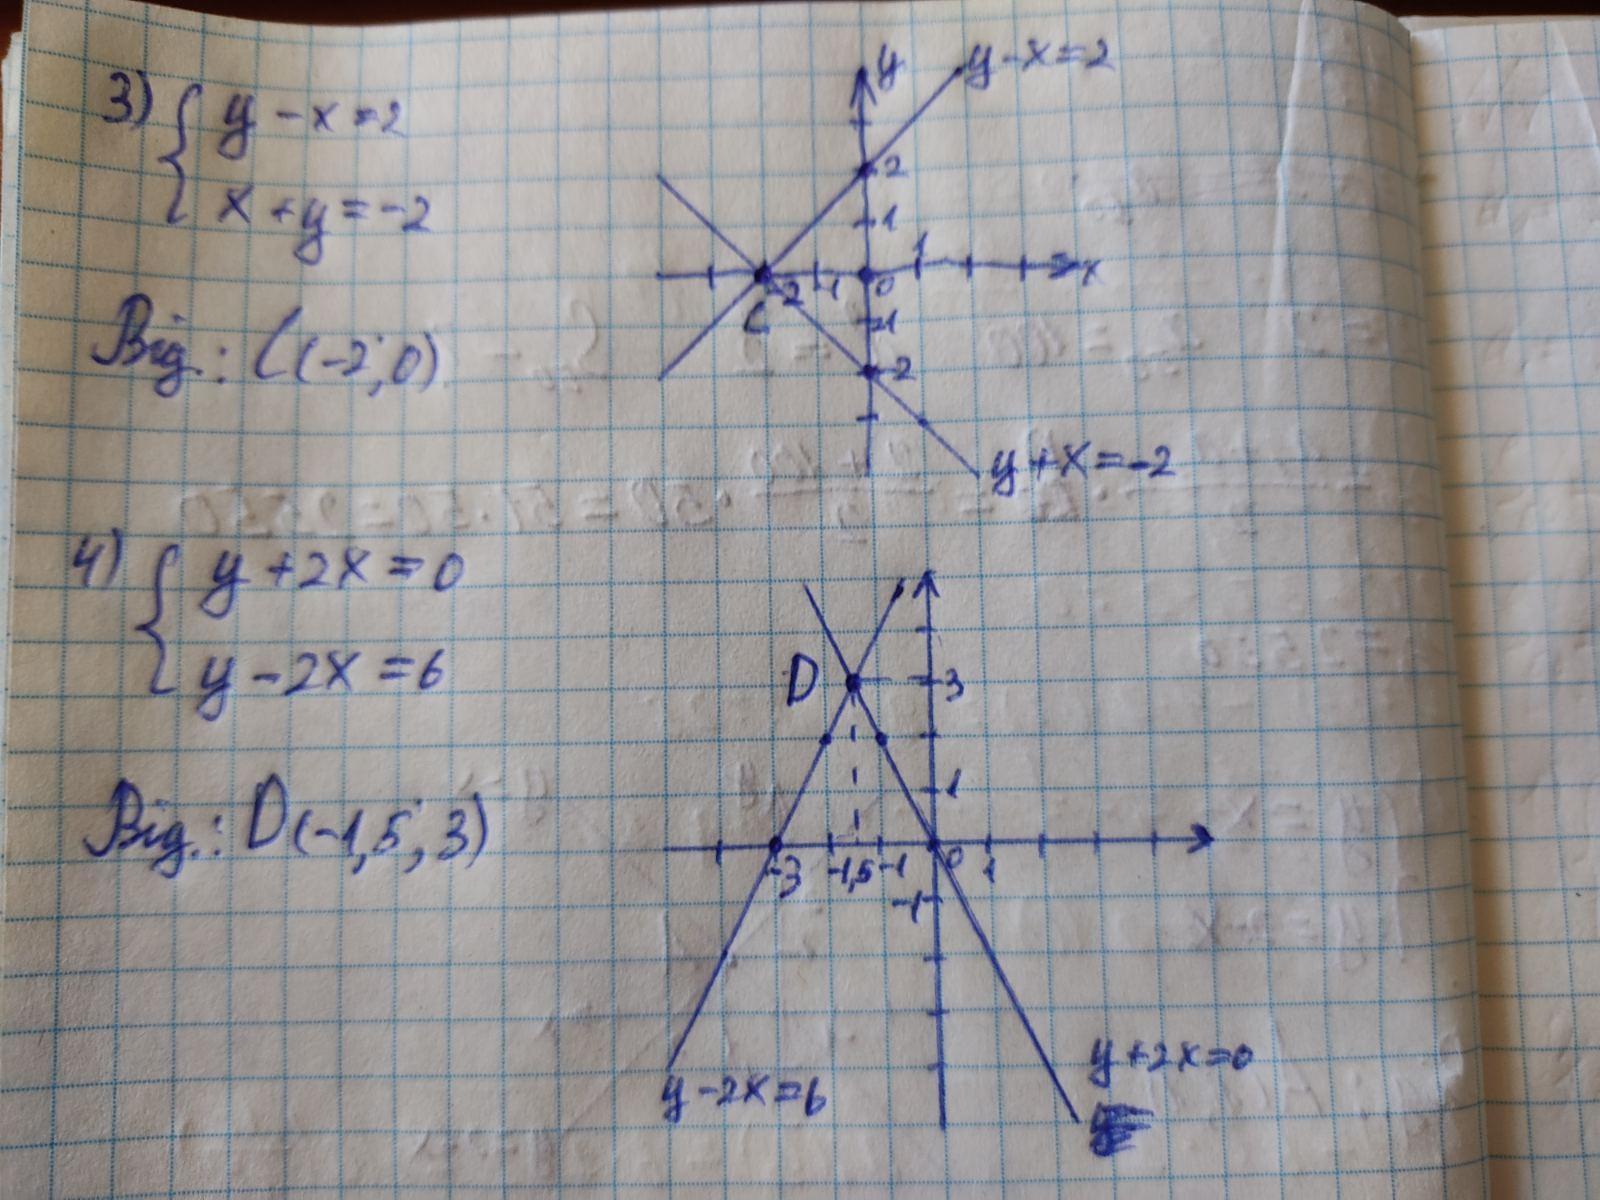 3) { y - x = 2
x + y = -2
Від.: C(-2; 0)
y
y - x = 2
2
1
1
-2 -1 0
x
C
-1
-2
y + x = -2
4) { y + 2x = 0
y - 2x = 6
Від.: D(-1,5; 3)
D
3
1
-3 -1,5 -1 0 1
-1
y + 2x = 0
y - 2x = 6